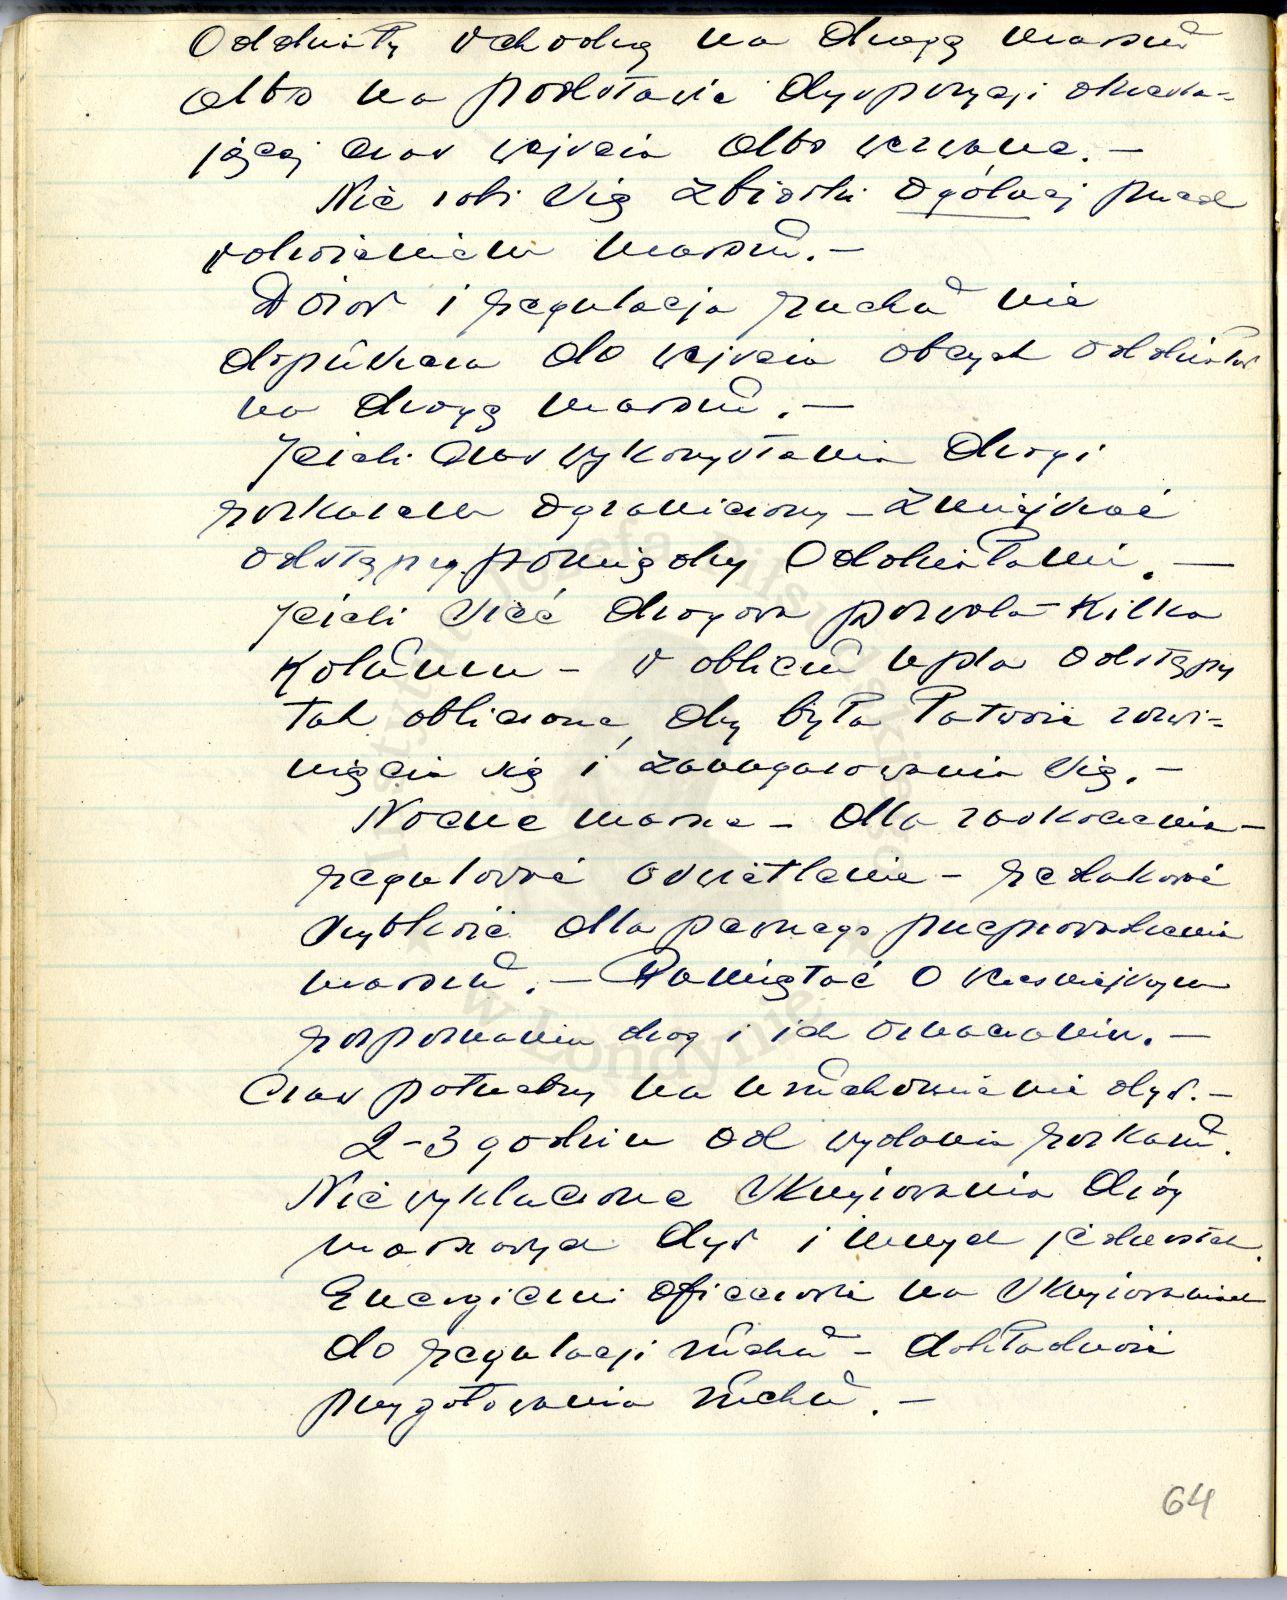 Oddziały wchodzą na drogę marszu
albo na podstawie dyspozycji określa-
jącej czas wejścia albo wezwane. –
Nie robi się zbiórki ogólnej przed
rozpoczęciem marszu. –
Dozór i regulacja ruchu nie
dopuszcza do wejścia obcych oddziałów
na drogę marszu. –
Jeżeli czas wykorzystania drogi
rozkazem ograniczony – zmniejszać
odstępy pomiędzy Oddziałami. –
Jeżeli sieć drogowa pozwala – kilka
kolumn – w obliczu npla odstępy
tak obliczone, aby była łatwość rozwi-
nięcia się i zaangażowania się. –
Nocne marsze – dla zaskoczenia –
regulować oświetlenie – redukować
szybkość dla pewnego przeprowadzenia
marszu. – Pamiętać o wcześniejszym
rozpoznaniu dróg i ich oznaczaniu. –
Czas potrzebny na uruchomienie dyw. –
2–3 godzin od wydania rozkazu.
Nie wykluczone skrzyżowania dróg
marszowych dyw i innych jednostek.
Energiczni oficerowie na skrzyżowaniach
do regulacji ruchu – dokładność
przygotowania ruchu. –
64
Instytut Józefa Piłsudskiego w Londynie